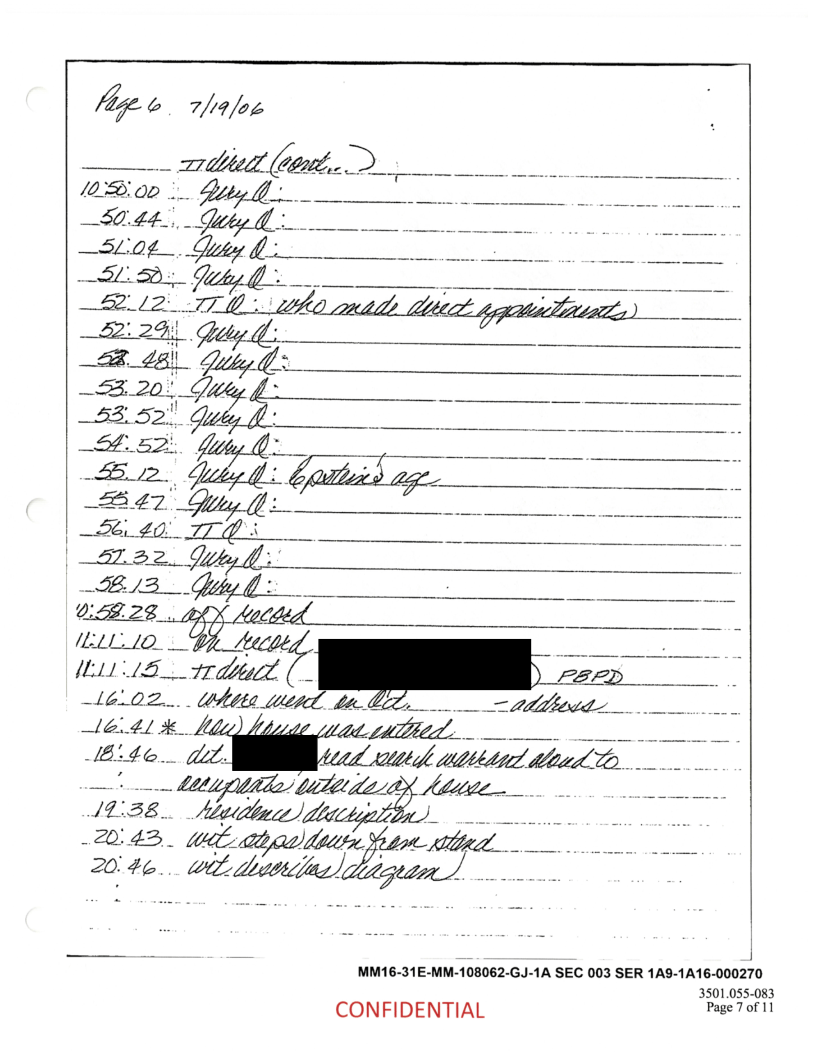 Page 6 7/19/06
π direct (cont...)
10:50:00 Jury Q:
50:44 Jury Q:
51:04 Jury Q:
51:50 Jury Q:
52:12 π Q: who made direct appointments
52:29 Jury Q:
52:48 Jury Q:
53:20 Jury Q:
53:52 Jury Q:
54:52 Jury Q:
55:12 Jury Q: Epstein's age
55:47 Jury Q:
56:40 π Q:
57:32 Jury Q:
58:13 Jury Q:
10:58:28 off record
11:11:10 on record
11:11:15 π direct ( ) PBPD
16:02 where went on - address
16:41 * how house was entered
18:46 det. read search warrant aloud to
occupants outside of house
19:38 residence description
20:43 wit steps down from stand
20:46 wit describes diagram
MM16-31E-MM-108062-GJ-1A SEC 003 SER 1A9-1A16-000270
3501.055-083
Page 7 of 11
CONFIDENTIAL